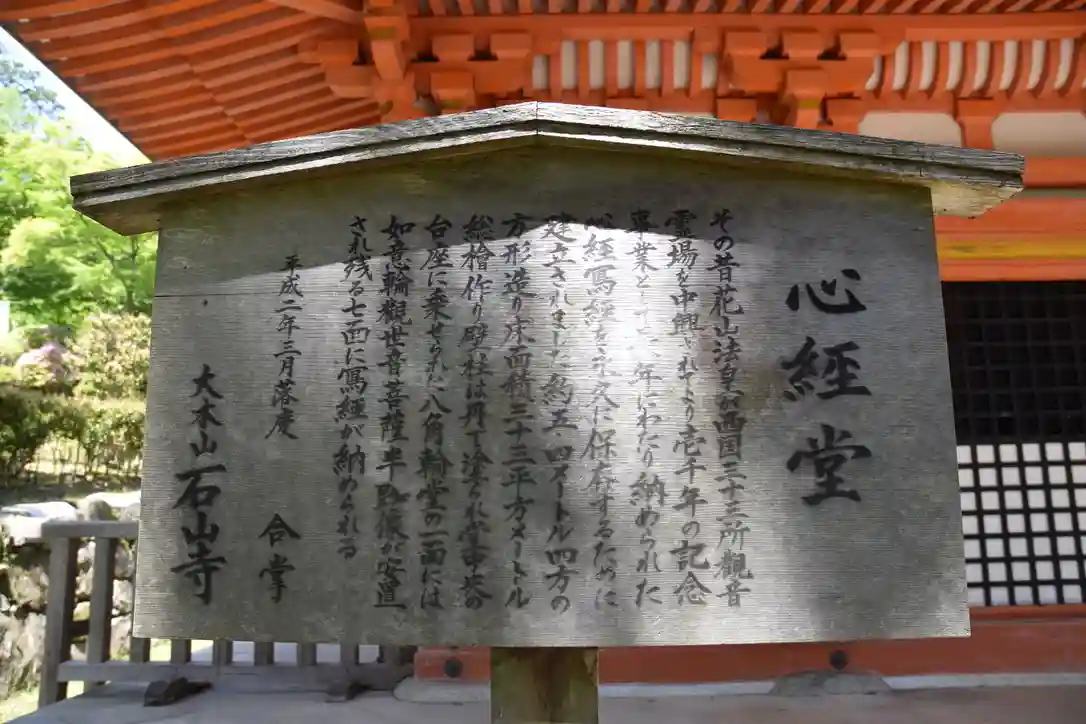 心経堂
その昔花山法皇が西国三十三所観音
霊場を中興されてより壱千年の記念
事業として 年にわたり納められた
心経写経を永久に保存するために
建立されました約五・四メートル四方の
方形造り床面積三十三平方メートル
総檜作り壁柱は丹で塗られ堂中央の
台座に乗せられた八角輪堂の一面には
如意輪觀世音菩薩半跏像が安置
され残る七面に寫經が納められる
平成二年三月落慶
合掌
大本山石山寺